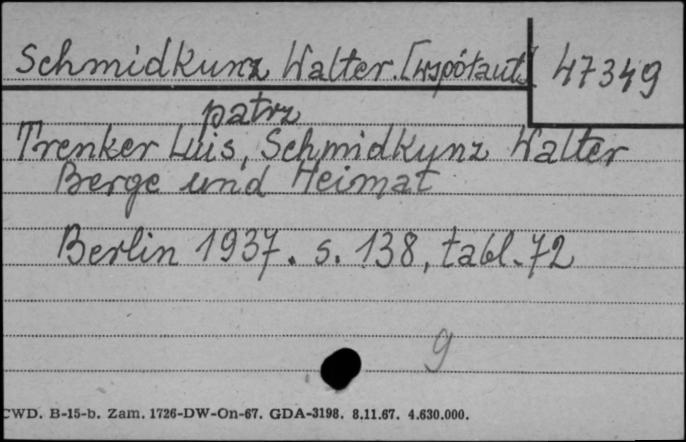 Schmidkunz Walter. [współaut.] 47349
patrz
Trenker Luis, Schmidkunz Walter
Berge und Heimat
Berlin 1937. s. 138, tabl. 72
9
CWD. B-15-b. Zam. 1726-DW-On-67. GDA-3198. 8.11.67. 4.630.000.